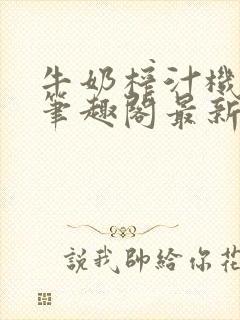 牛奶榨汁機
筆趣閣最新
說我帥給你花